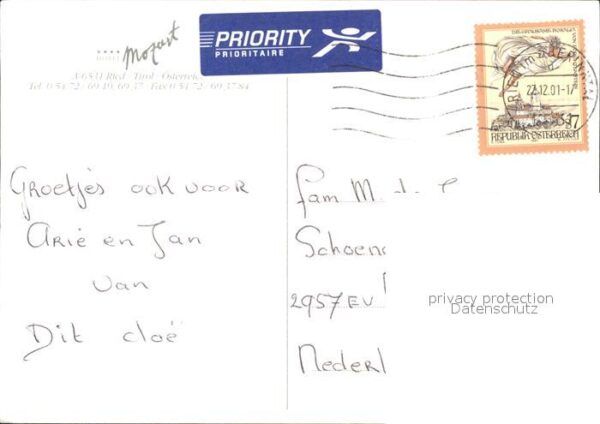 HOTEL
Mozart
A-6531 Ried · Tirol · Österreich
Tel. 0 54 72 / 69 49, 69 37 · Fax 0 54 72 / 69 37 84
PRIORITY
PRIORITAIRE
22.12.01-17
S 7
REPUBLIK ÖSTERREICH
Groetjes ook voor
Arie en Jan
van
Dit cloë
fam M.
Schoen
2957 EV
Nederl
privacy protection
Datenschutz